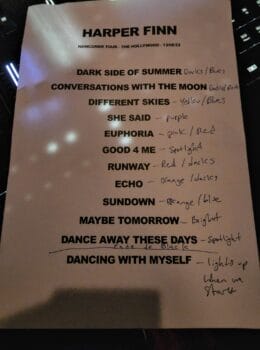 HARPER FINN
NEWCOMER TOUR - THE HOLLYWOOD - 13/05/23
DARK SIDE OF SUMMER Darks/Blues
CONVERSATIONS WITH THE MOON
DIFFERENT SKIES - Yellow/Blues
SHE SAID - purple
EUPHORIA - pink/Red
GOOD 4 ME - Spotlight
RUNWAY - Red/darks
ECHO - orange/darks
SUNDOWN - Orange/blue
MAYBE TOMORROW - Bright
DANCE AWAY THESE DAYS - Spotlight
Fade to Black
DANCING WITH MYSELF - lights up
when we
start